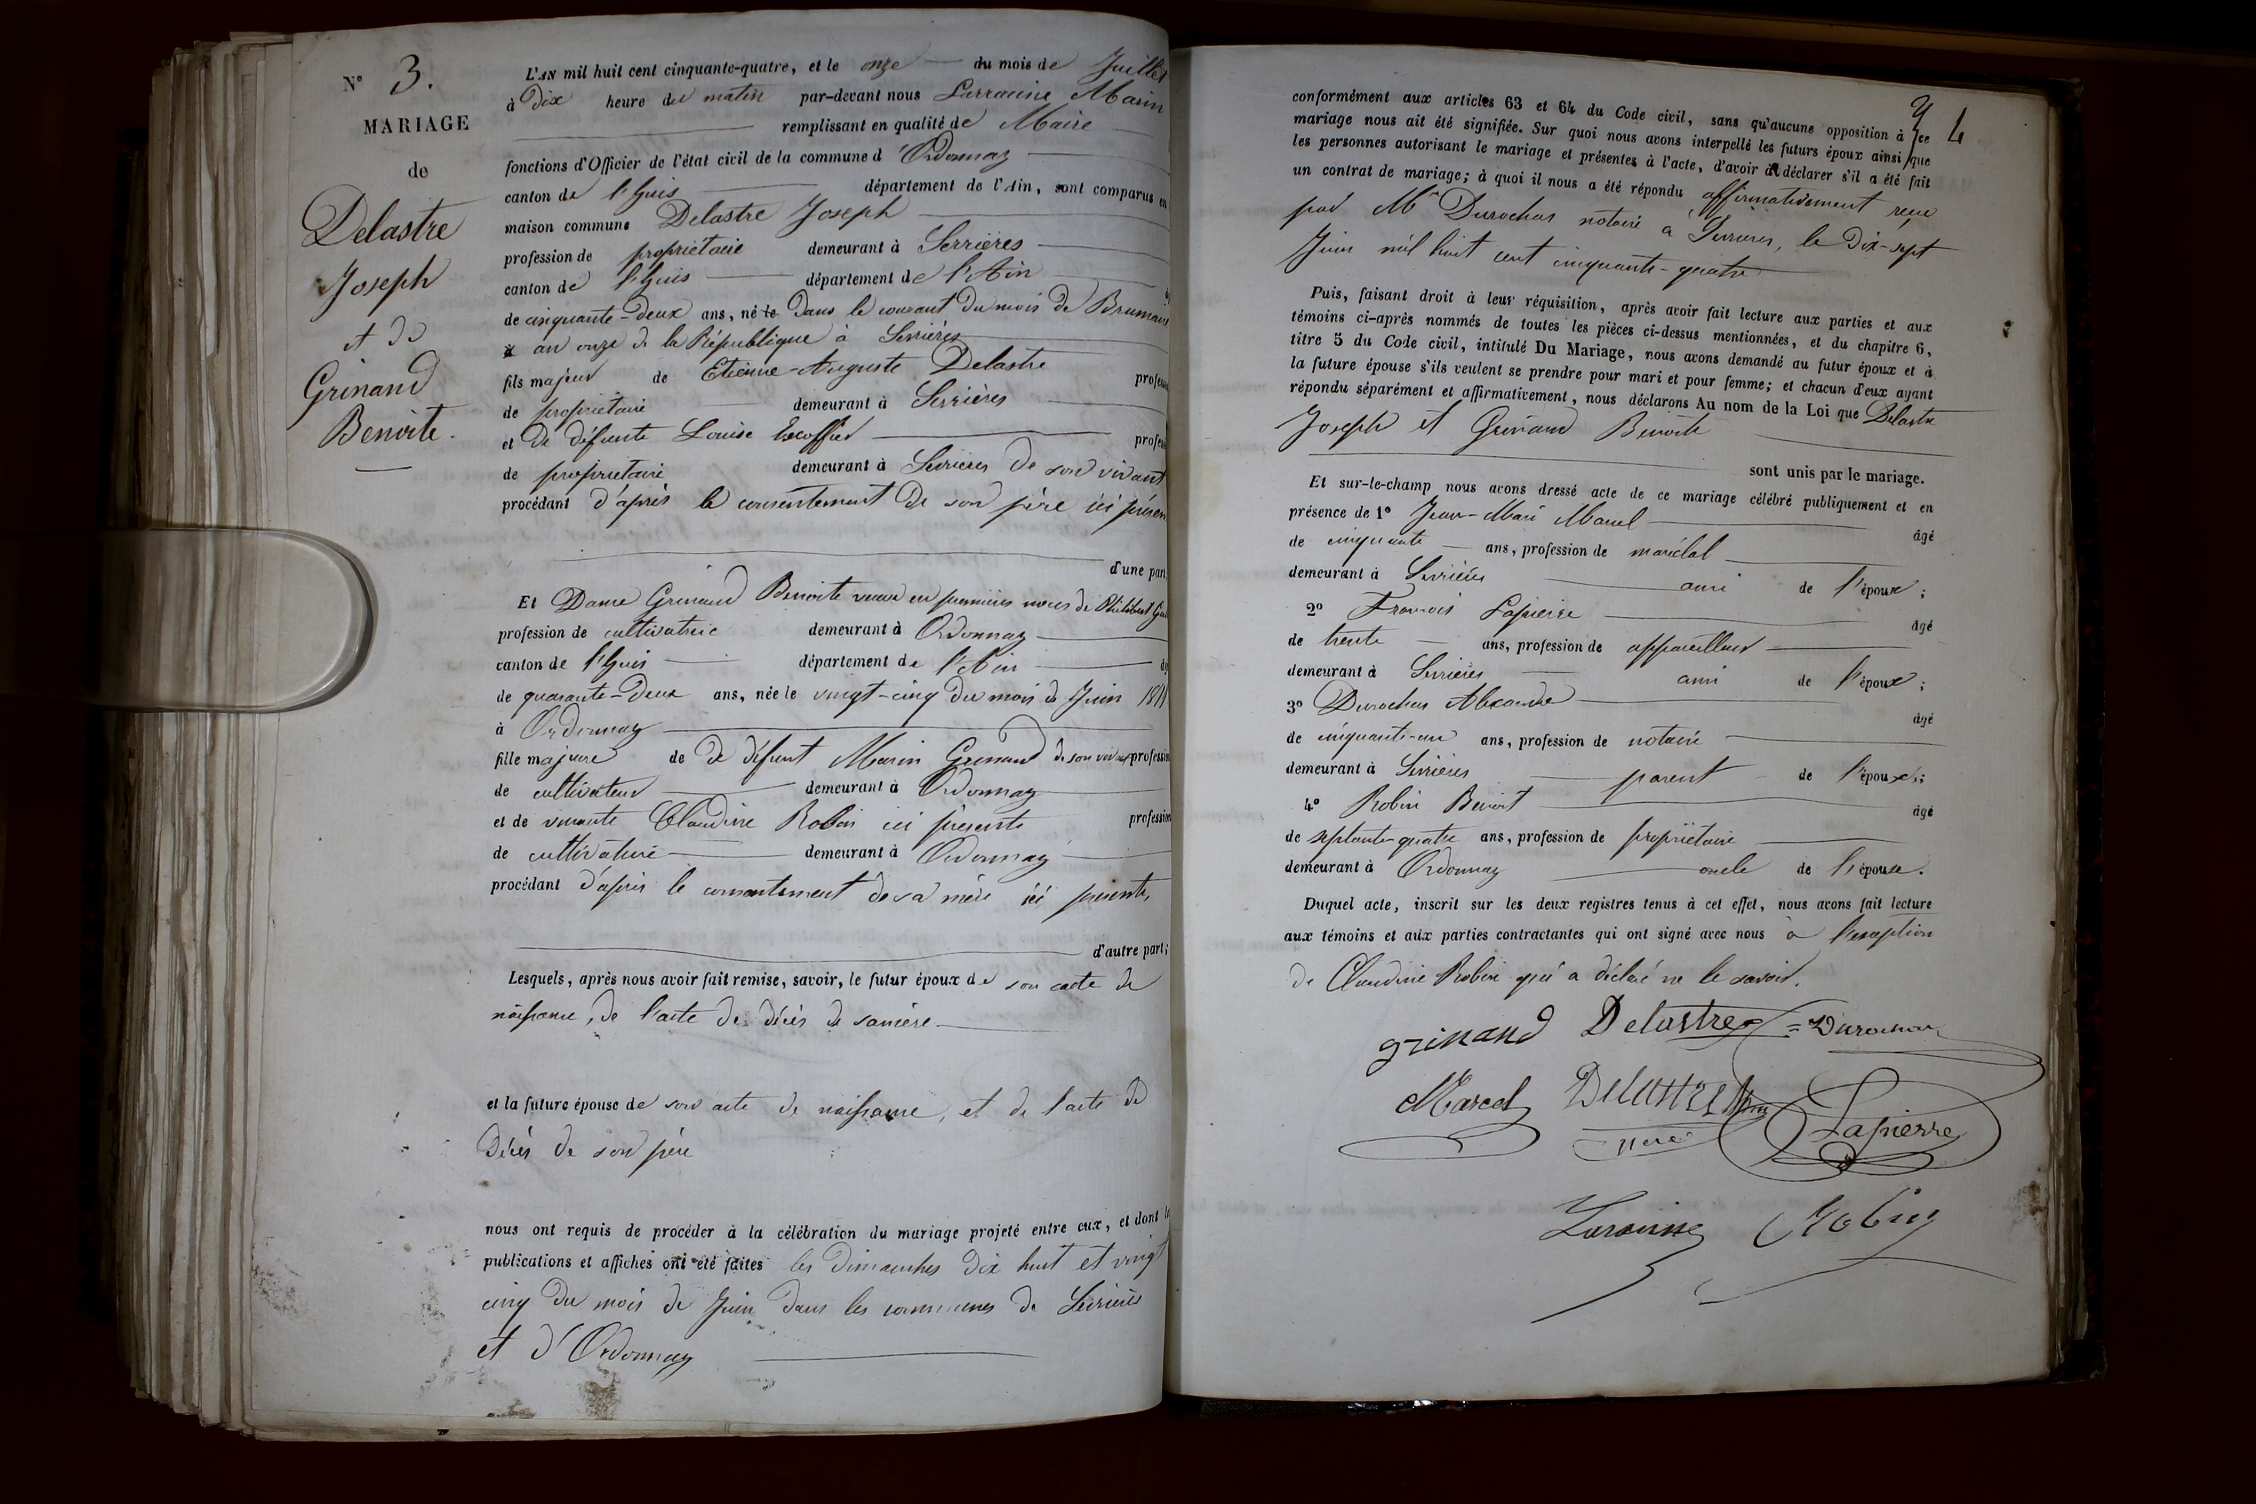 N° 3.
MARIAGE
de
Delastre
Joseph
et de
Grinand
Benoite.
L'AN mil huit cent cinquante-quatre, et le onze du mois de Juillet
à Dix heure du matin par-devant nous Larraine Marin
remplissant en qualité de Maire
fonctions d'Officier de l'état civil de la commune d'Ordonnaz
canton de l'huis département de l'Ain, sont comparus en
maison commune Delastre Joseph
profession de propriétaire demeurant à Serrières
canton de l'huis département de l'Ain
de cinquante-deux ans, né le Dans le courant du mois de Brumaire
an onze de la République à Serrières
fils majeur de Etienne-Auguste Delastre profession
de propriétaire demeurant à Serrières
et de défunte Louise Escoffier
de propriétaire demeurant à Serrières de son vivant
procédant d'après le consentement de son père ici présen
d'une part,
Et Dame Grinand Benoite veuve en premières noces de Philibert
profession de cultivatrice demeurant à Ordonnaz
canton de l'huis département de l'Ain
de quarante-deux ans, née le vingt-cinq du mois de Juin
à Ordonnaz
fille majeure de de défunt Marin Grinand de son vivant profession
de cultivateur demeurant à Ordonnaz
et de vivante Claudine Robin ici présente profession
de cultivatrice demeurant à Ordonnaz
procédant d'après le consentement de sa mère ici présente,
d'autre part;
Lesquels, après nous avoir fait remise, savoir, le futur époux de son acte de
naissance, de l'acte de décès de sa mère
et la future épouse de son acte de naissance, et de l'acte de
Décès de son père
nous ont requis de procéder à la célébration du mariage projeté entre eux, et dont le
publications et affiches ont été faites les dimanches dix huit et vingt
cinq du mois de Juin dans les communes de Serrières
et d'Ordonnaz
4
conformément aux articles 63 et 64 du Code civil, sans qu'aucune opposition à ce
mariage nous ait été signifiée. Sur quoi nous avons interpellé les futurs époux ainsi que
les personnes autorisant le mariage et présentes à l'acte, d'avoir à déclarer s'il a été fait
un contrat de mariage; à quoi il nous a été répondu affirmativement reçu
par Me Durochas notaire à Serrières, le Dix-sept
Juin mil huit cent cinquante-quatre
Puis, faisant droit à leur réquisition, après avoir fait lecture aux parties et aux
témoins ci-après nommés de toutes les pièces ci-dessus mentionnées, et du chapitre 6,
titre 5 du Code civil, intitulé Du Mariage, nous avons demandé au futur époux et à
la future épouse s'ils veulent se prendre pour mari et pour femme; et chacun d'eux ayant
répondu séparément et affirmativement, nous déclarons Au nom de la Loi que Delastre
Joseph et Grinand Benoite
sont unis par le mariage.
Et sur-le-champ nous avons dressé acte de ce mariage célébré publiquement et en
présence de 1° Jean-Marie Marcel âgé
de cinquante ans, profession de maréchal
demeurant à Serrières ami de l'époux;
2° François Lapierre âgé
de trente ans, profession de appareilleur
demeurant à Serrières ami de l'époux;
3° Durochas Alexandre âgé
de cinquante-un ans, profession de notaire
demeurant à Serrières parent de l'époux;
4° Robin Benoit âgé
de septante-quatre ans, profession de propriétaire
demeurant à Ordonnaz oncle de l'épouse.
Duquel acte, inscrit sur les deux registres tenus à cet effet, nous avons fait lecture
aux témoins et aux parties contractantes qui ont signé avec nous à l'exception
de Claudine Robin qui a déclaré ne le savoir.
grinand Delastre Durochas
Marcel Delastre
père Lapierre
Larraine Robin